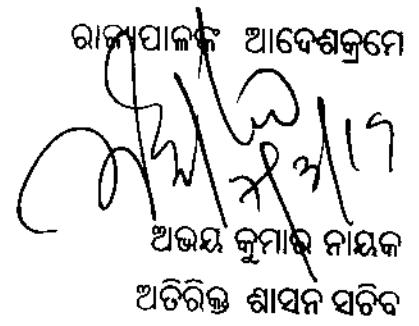 ରାଜ୍ୟପାଳଙ୍କ ଆଦେଶକ୍ରମେ
ଅଭୟ କୁମାର ନାୟକ
ଅତିରିକ୍ତ ଶାସନ ସଚିବ